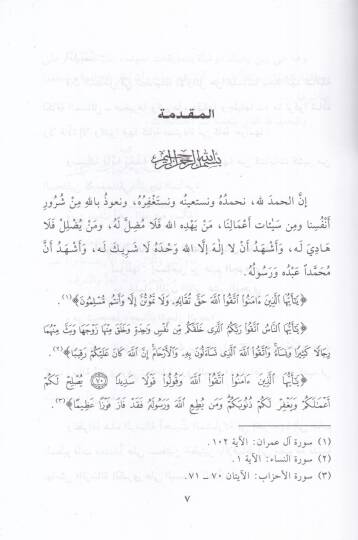 المقدمة
بسم الله الرحمن الرحيم
إنَّ الحمدَ لله، نحمدُهُ ونستعينُه ونستَغْفِرُه، ونعوذُ باللهِ مِنْ شُرُورِ
أَنْفُسِنا ومِن سَيِّئات أعْمَالِنَا، مَنْ يَهْدِه الله فَلَا مُضِلَّ لَهُ، ومَنْ يُضْلِلْ فَلَا
هَادِيَ لَه، وَأَشْهَدُ أنْ لا إلٰهَ إلَّا الله وَحْدَهُ لَا شَرِيكَ لَه، وَأَشْهَدُ أنَّ
مُحَمَّداً عَبْدُه وَرَسُولُهُ.
﴿يَٰٓأَيُّهَا ٱلَّذِينَ ءَامَنُوا۟ ٱتَّقُوا۟ ٱللَّهَ حَقَّ تُقَاتِهِۦ وَلَا تَمُوتُنَّ إِلَّا وَأَنتُم مُّسْلِمُونَ﴾(١).
﴿يَٰٓأَيُّهَا ٱلنَّاسُ ٱتَّقُوا۟ رَبَّكُمُ ٱلَّذِى خَلَقَكُم مِّن نَّفْسٍ وَٰحِدَةٍ وَخَلَقَ مِنْهَا زَوْجَهَا وَبَثَّ مِنْهُمَا
رِجَالًا كَثِيرًا وَنِسَآءً ۚ وَٱتَّقُوا۟ ٱللَّهَ ٱلَّذِى تَسَآءَلُونَ بِهِۦ وَٱلْأَرْحَامَ ۚ إِنَّ ٱللَّهَ كَانَ عَلَيْكُمْ رَقِيبًا﴾(٢).
﴿يَٰٓأَيُّهَا ٱلَّذِينَ ءَامَنُوا۟ ٱتَّقُوا۟ ٱللَّهَ وَقُولُوا۟ قَوْلًا سَدِيدًا ٧٠ يُصْلِحْ لَكُمْ
أَعْمَٰلَكُمْ وَيَغْفِرْ لَكُمْ ذُنُوبَكُمْ ۗ وَمَن يُطِعِ ٱللَّهَ وَرَسُولَهُۥ فَقَدْ فَازَ فَوْزًا عَظِيمًا﴾(٣).
(١) سورة آل عمران: الآية ١٠٢.
(٢) سورة النساء: الآية ١.
(٣) سورة الأحزاب: الآيتان ٧٠ ــ ٧١.
٧